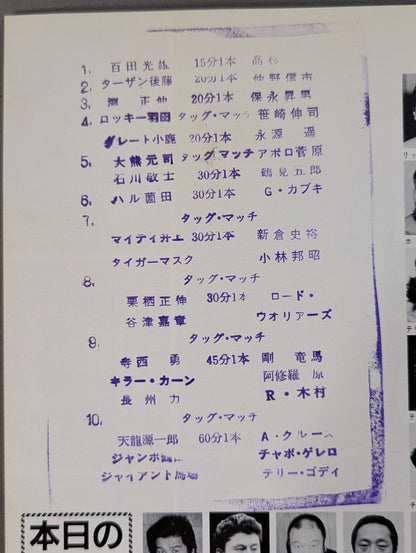 1. 百田光雄 15分1本 高杉
2. ターザン後藤 20分1本 仲野信市
3. 淵 正伸 20分1本 保永昇男
4. ロッキー羽田 タッグ・マッチ 笹崎伸司
グレート小鹿 20分1本 永源 遥
5. 大熊元司 タッグ マッチ アポロ菅原
石川敬士 30分1本 鶴見五郎
6. ハル薗田 30分1本 G・カブキ
7. タッグ・マッチ
マイティ井上 30分1本 新倉史裕
タイガーマスク 小林邦昭
8. タッグ・マッチ
栗栖正伸 30分1本 ロード・
谷津嘉章 ウオリアーズ
9. タッグ・マッチ
寺西 勇 45分1本 剛 竜馬
キラー・カーン 阿修羅 原
長州 力 R・木村
10. タッグ・マッチ
天龍源一郎 60分1本 A・クルース
ジャンボ鶴田 チャボ・ゲレロ
ジャイアント馬場 テリー・ゴディ
本日の